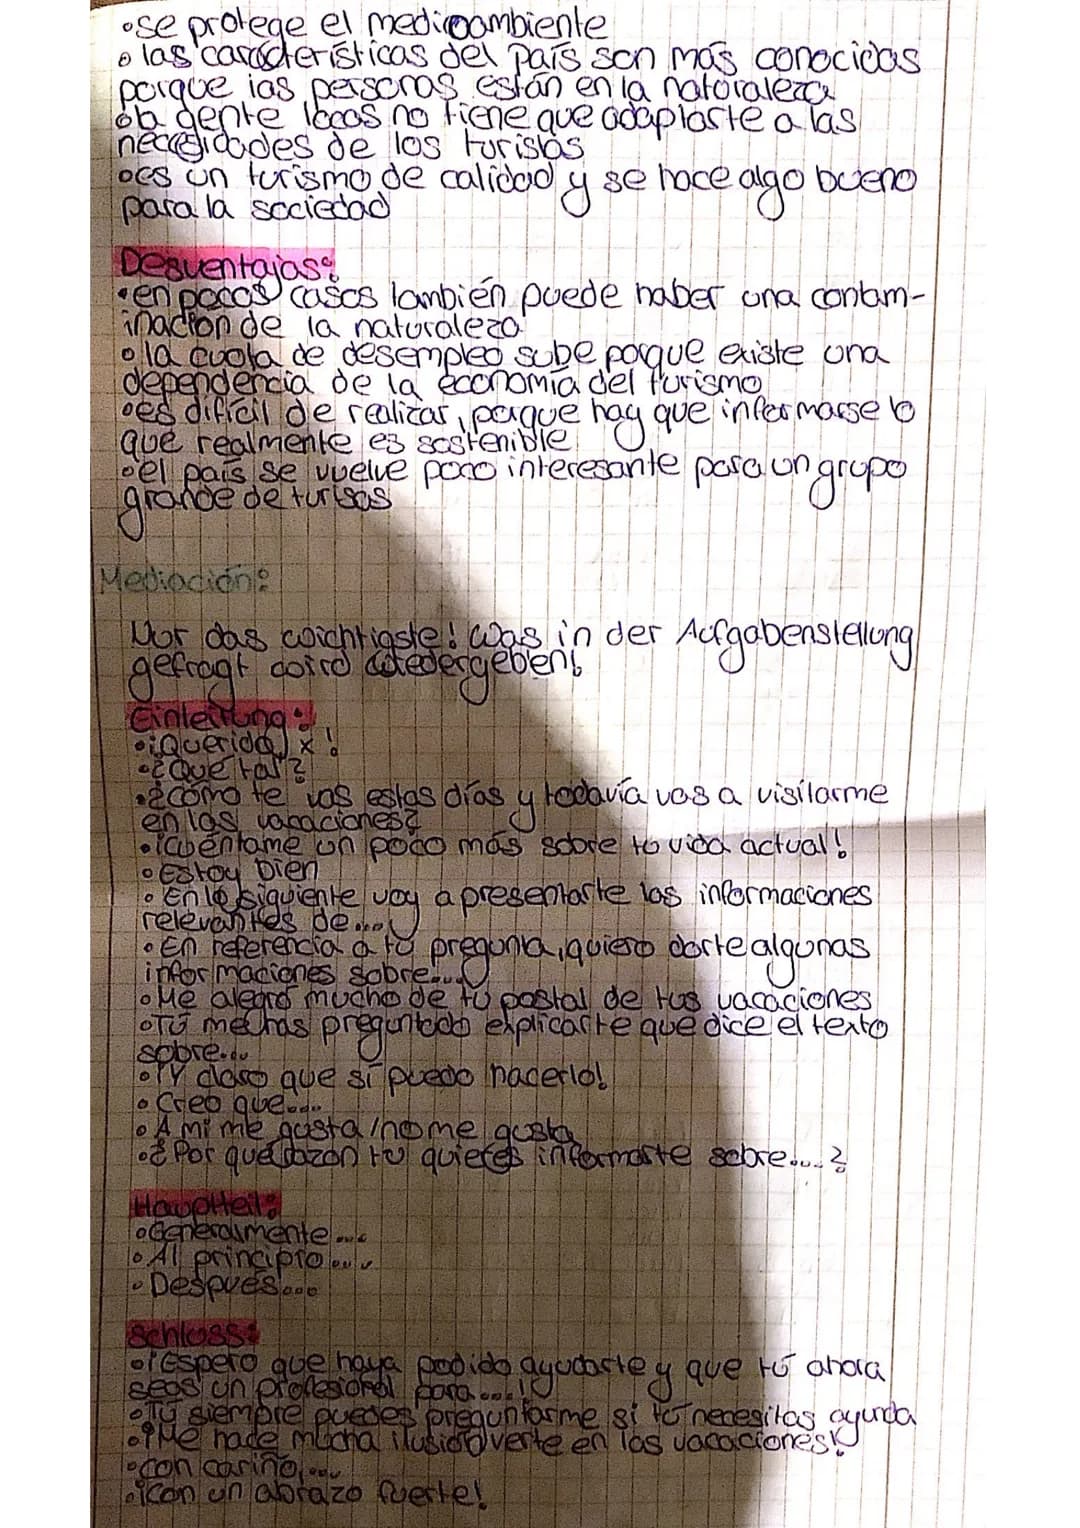 •se protege el medioambiente
• las características del país son más conocidas
porque las personas están en la naturaleza
•la gente locas no tiene que adaptarte a las
necesidades de los turistas
•es un turismo de calidad y se hace algo bueno
para la sociedad
Desventajas:
•en pocos casos también puede haber una contam-
inación de la naturaleza
•la cuota de desempleo sube porque existe una
dependencia de la economía del turismo
•es difícil de realizar, porque hay que informarse lo
que realmente es sostenible
•el país se vuelve poco interesante para un grupo
grande de turisas
Mediación:
Nur das wichtigste! Was in der Aufgabenstellung
gefragt wird wiedergeben!
Einleitung:
•¡Querida) x!
•¿Qué tal?
•¿cómo te vas estas días y todavía vas a visitarme
en las vacaciones?
•¡cuéntame un poco más sobre tu vida actual!
•Estoy bien
• En lo siguiente voy a presentarte las informaciones
relevantes de...
• En referencia a tu pregunta, quiero darte algunas
informaciones sobre...
•Me alegro mucho de tu postal de tus vacaciones
•Tú me has preguntado explicarte que dice el texto
sobre...
•¡Y claro que sí puedo hacerlo!
• Creo que...
• A mi me gusta/no me gusta
•¿Por qué razon tu quieres informarte sobre....?
Hauptteil:
•Generalmente...
•Al principio...
•Después...
Schluss:
•¡Espero que haya podido ayudarte y que tú ahora
seas un profesional para...!
•Tú siempre puedes preguntarme si tú necesitas ayuda
•¡Me hade mucha ilusión verte en las vacaciones!
•con cariño,...
•¡con un abrazo fuerte!